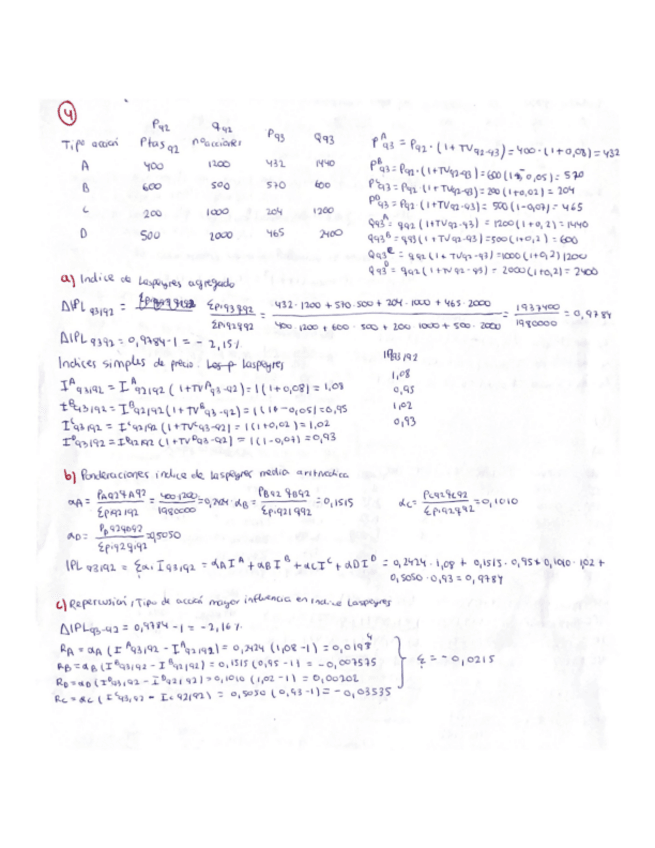 4
P92 Q92
Tipo acción Ptas92 nºacciones P93 Q93
A 400 1200 432 1440
B 600 500 570 600
C 200 1000 204 1200
D 500 2000 465 2400
P^A93 = P92 · (1 + TV92-93) = 400 · (1 + 0,08) = 432
P^B93 = P92 · (1 + TV92-93) = 600 (1 - 0,05) = 570
P^C93 = P92 (1 + TV92-93) = 200 (1+0,02) = 204
P^D93 = P92 (1 + TV92-93) = 500 (1-0,07) = 465
Q93^A = q92 (1 + TV92-93) = 1200 (1 + 0,2) = 1440
Q93^B = q93 (1 + TV92-93) = 500 (1+0,2) = 600
Q93^C = q92 (1 + TV92-93) = 1000 (1+0,2) 1200
Q93^D = q92 (1 + TV92-93) = 2000 (1+0,2) = 2400
a) Indice de Laspeyres agregado
ΔIPL93/92 = ΣPi93q92 / ΣPi92q92 = 432·1200 + 570·500 + 204·1000 + 465·2000 / 400·1200 + 600·500 + 200·1000 + 500·2000 = 1937400 / 1980000 = 0,9784
ΔIPL9392 = 0,9784-1 = -2,15%
Indices simples de precio. Los-p laspeyres
I^A93/92 = I^A92/92 (1+TV^A93-92) = 1(1+0,08) = 1,08
I^B93/92 = I^B92/92 (1+TV^B93-92) = 1(1+-0,05) = 0,95
I^C93/92 = I^C92/92 (1+TV^C93-92) = 1(1+0,02) = 1,02
I^D93/92 = I^D92/92 (1+TV^D93-92) = 1(1-0,07) = 0,93
IP93/92
1,08
0,95
1,02
0,93
b) Ponderaciones indice de laspeyres media aritmetica
αA = PA92qA92 / ΣPi92i92 = 400·1200 / 1980000 = αB = PB92qB92 / ΣPi92i92 = 0,1515 αC = PC92qC92 / ΣPi92q92 = 0,1010
αD = PD92qD92 / ΣPi92qi92 = 0,5050
IPL93/92 = Σαi Ii93/92 = αA I^A + αB I^B + αC I^C + αD I^D = 0,2424 · 1,08 + 0,1515 · 0,95 + 0,1010 · 1,02 +
0,5050 · 0,93 = 0,9784
c) Repercusión / Tipo de acción mayor influencia en indice laspeyres
ΔIPL93-92 = 0,9784 - 1 = -2,16%
RA = αA (I^A93/92 - I^A92/92) = 0,2424 (1,08 - 1) = 0,0194
RB = αB (I^B93/92 - I^B92/92) = 0,1515 (0,95 - 1) = -0,007575
RD = αD (I^D93/92 - I^D92/92) = 0,1010 (1,02 - 1) = 0,00202
RC = αC (I^C93/92 - IC92/92) = 0,5050 (0,93-1) = -0,03535
Σ = -0,0215